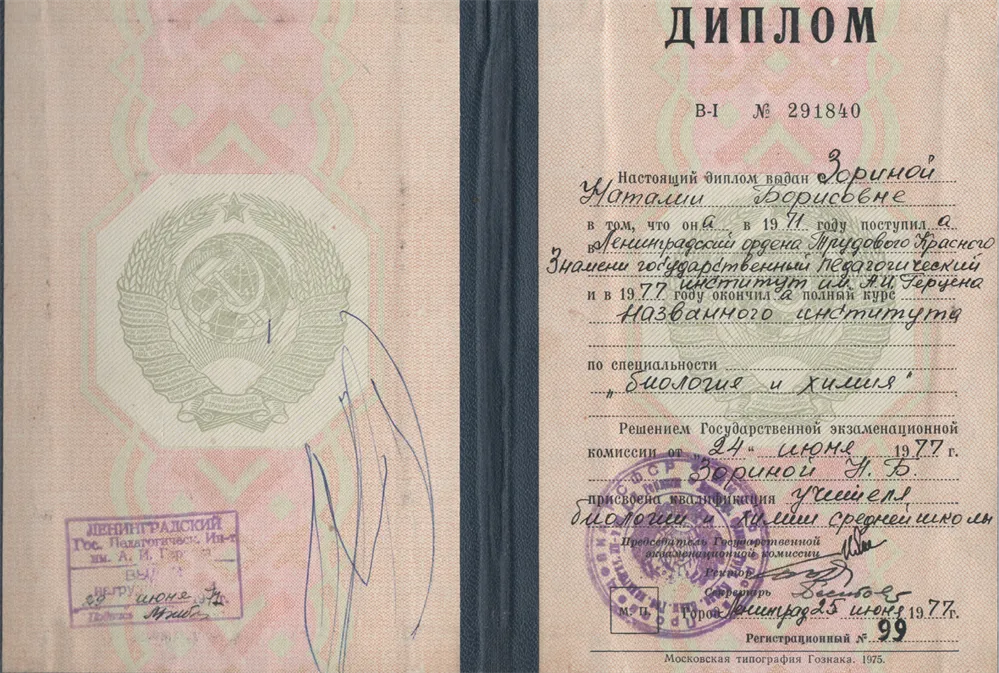 ЛЕНИНГРАДСКИЙ
Гос. Педагогическ. Ин-т
им. А. И.
29 июня
ДИПЛОМ
В-I № 291840
Настоящий диплом выдан Зориной
Наталии Борисовне
в том, что она в 1971 году поступила
в Ленинградский ордена Трудового Красного
Знамени государственный педагогический
институт им. А.И. Герцена
и в 1977 году окончила полный курс
названного института
по специальности
„биология и химия"
Решением Государственной экзаменационной
комиссии от "24" июня 1977 г.
Зориной Н. Б.
присвоена квалификация учителя
биологии и химии средней школы
Председатель Государственной
экзаменационной комиссии
Ректор
Секретарь
М. П. Город Ленинград 25 июня 1977 г.
Регистрационный № 99
Московская типография Гознака. 1975.